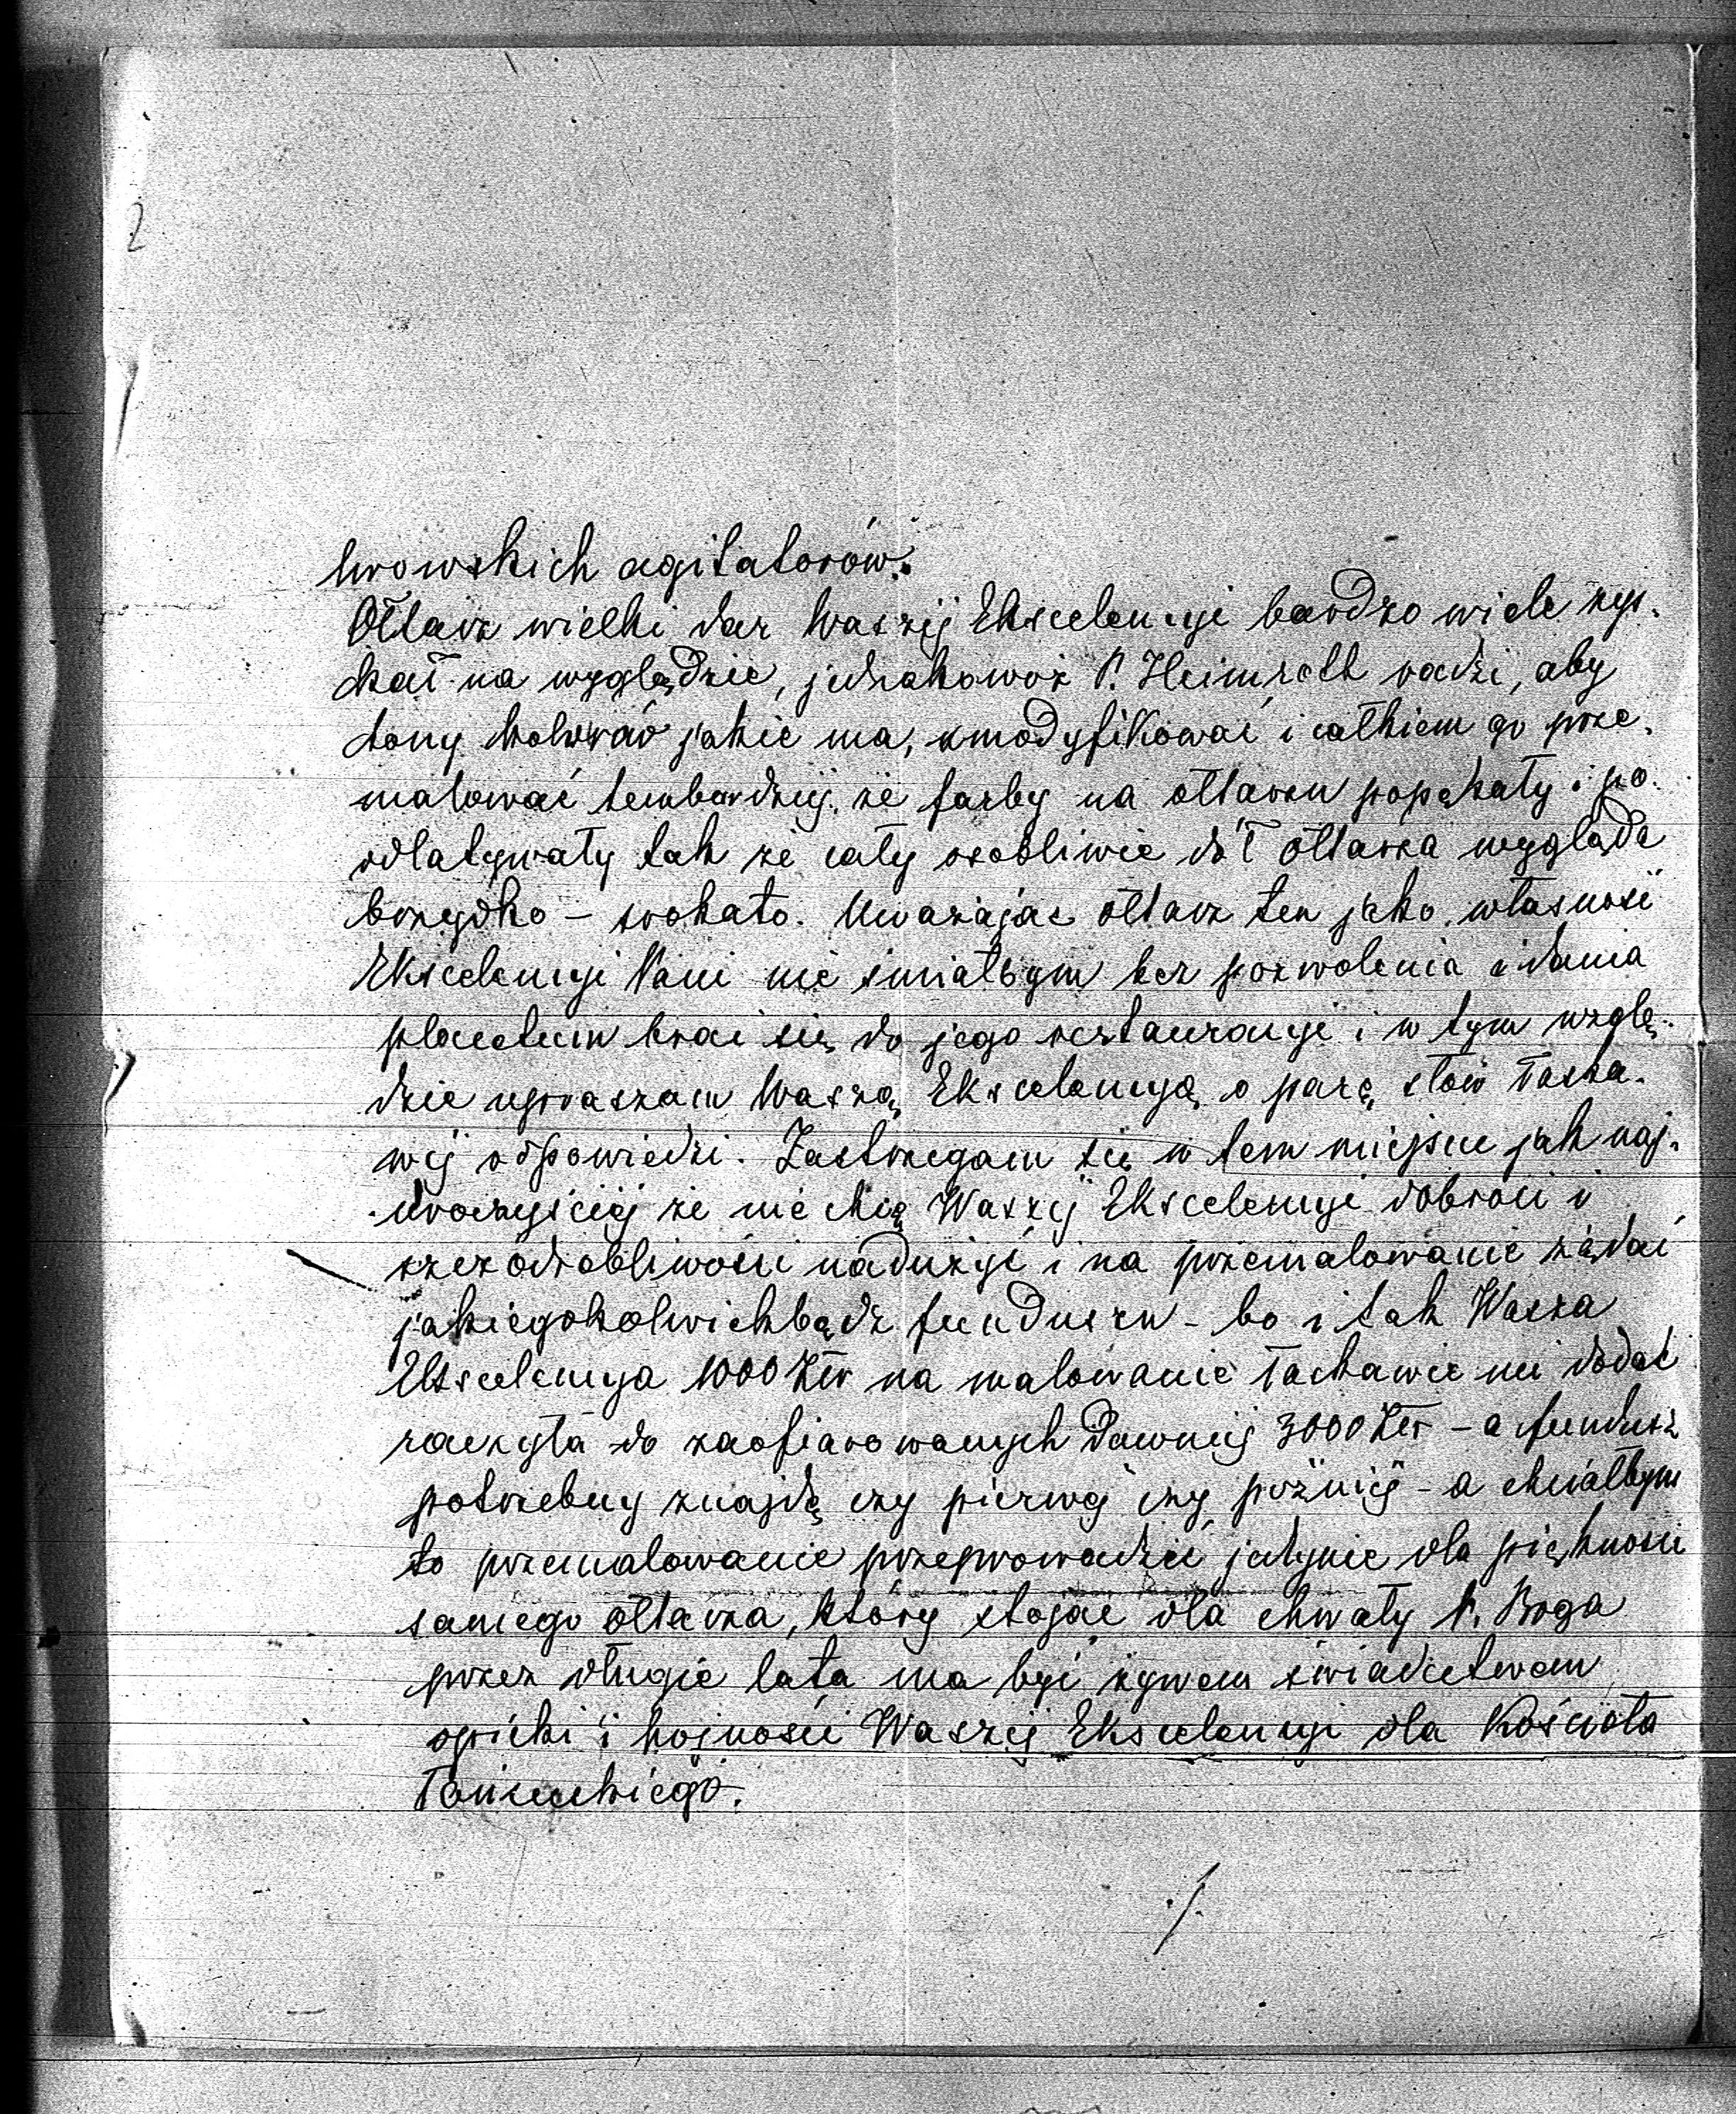 2
lwowskich agitatorów.
Ołtarz wielki dar Waszej Ekscelencyi bardzo wiele zys-
kał na wyglądzie, jednakowoż P. Heimroth radzi, aby
tony kolorów jakie ma, zmodyfikować i całkiem go prze-
malować tembardziej, że farby na ołtarzu popękały i po-
odlatywały tak że cały osobliwie dół ołtarza wygląda
brzydko – srokato. Uważając ołtarz ten jako własność
Ekscelencyi Pani nie śmiałbym bez pozwolenia i dania
placetum brać się do jego restauracyi i w tym wzglę-
dzie upraszam Waszą Ekscelencyą o parę słów łaska-
wej odpowiedzi. Zastrzegam się w tem miejscu jak naj-
uroczyściej że nie chcę Waszej Ekscelencyi dobroci i
szczodrobliwości nadużyć i na przemalowanie żądać
jakiegokolwiekbądz funduszu – bo i tak Wasza
Ekscelencya 1000 Złr na malowanie łaskawie mi dodać
raczyła do zaofiarowanych dawniej 3000 Złr – a fundusz
potrzebny znajdę czy pierwej czy poźniej – a chciałbym
to przemalowanie przeprowadzić jedynie dla piękności
samego ołtarza, który stojąc dla chwały P. Boga
przez długie lata ma być żywem świadectwem
opieki i hojności Waszej Ekscelencyi dla Kościoła
Łańcuckiego.
./.